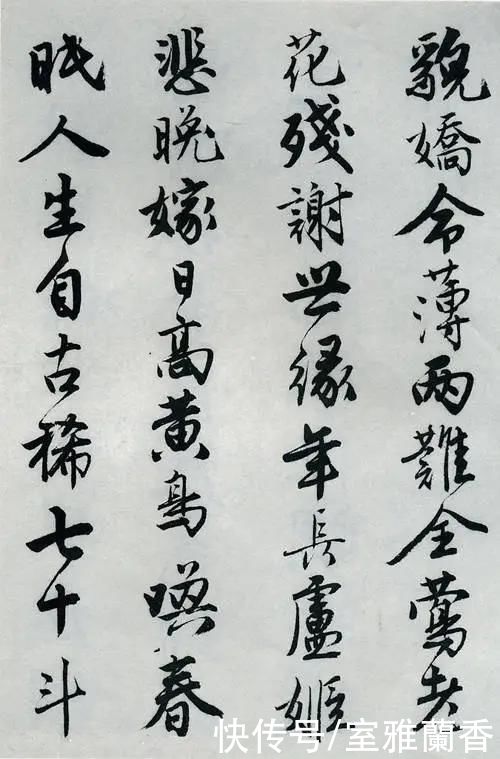 貌嬌命薄两難全鶯老
花殘謝世緣年長盧姬
悲晚嫁日高黄鳥暝春
眠人生自古稀七十斗
快传号/室雅蘭香